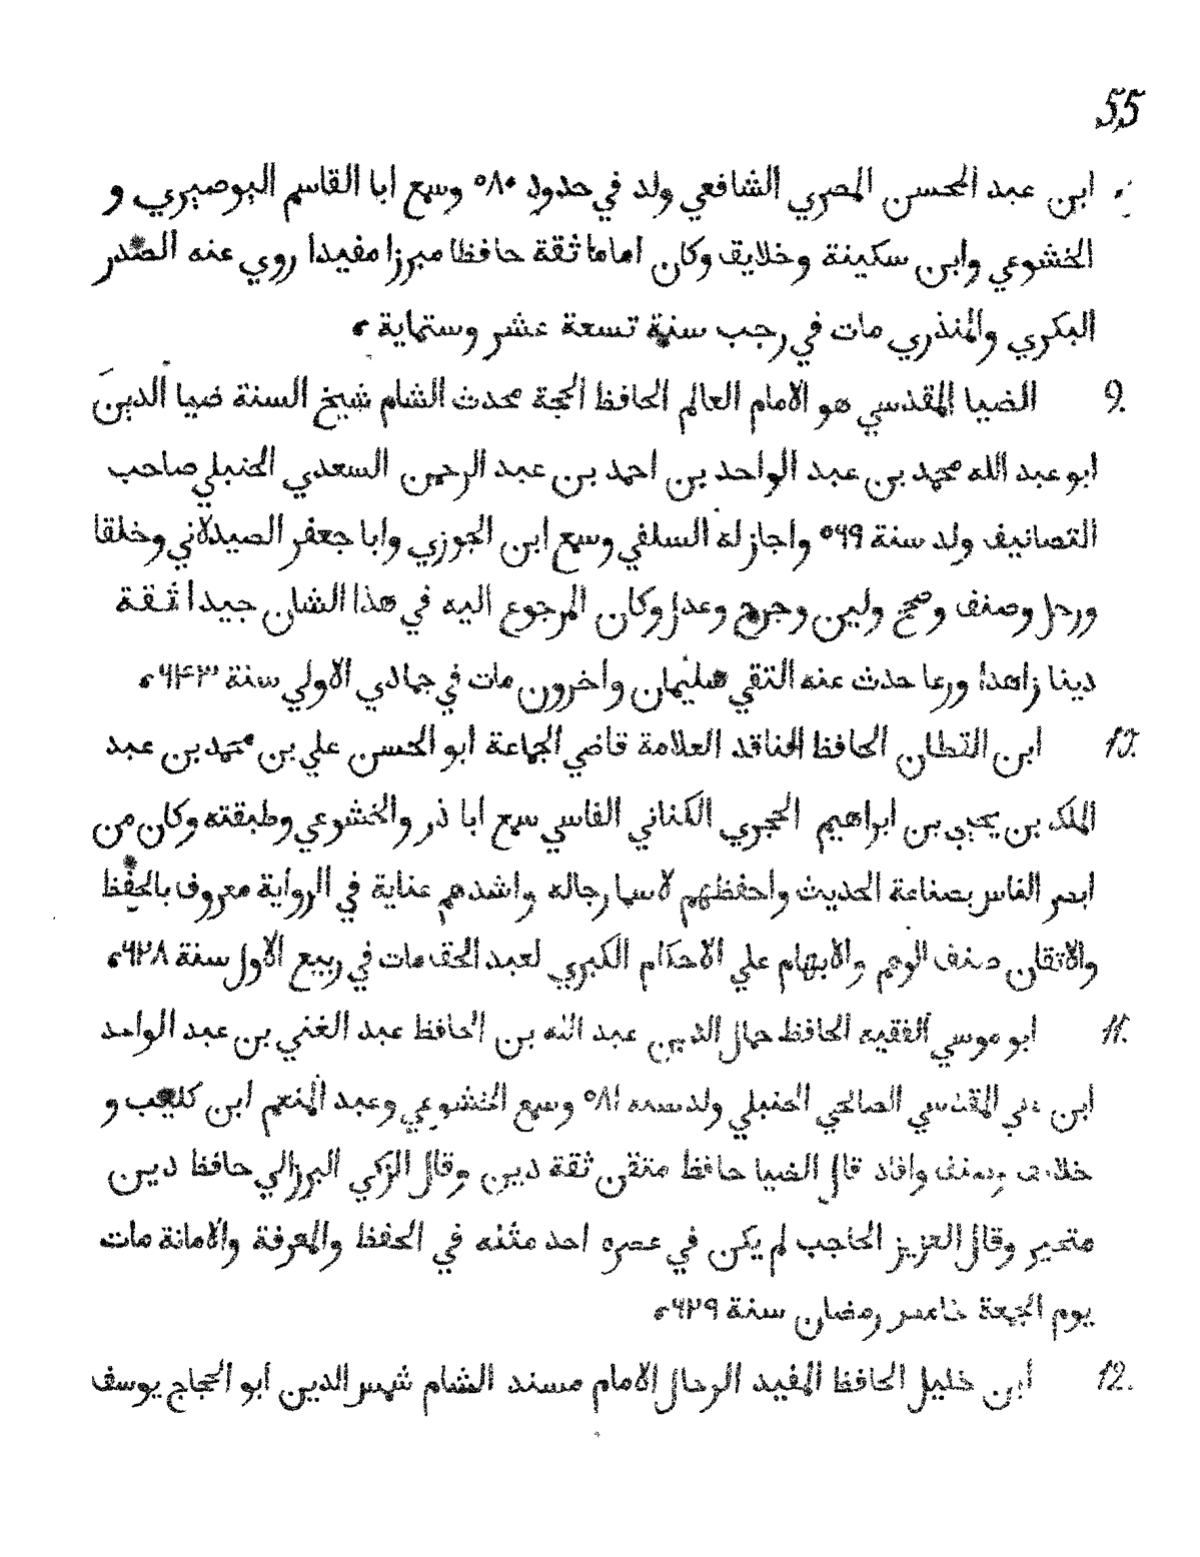 55
ابن عبد المحسن المصري الشافعي ولد في حدود ٥٨٠ وسمع ابا القاسم البوصيري و
الخشوعي وابن سكينة وخلايق وكان اماما ثقة حافظا مبرزا مفيدا روي عنه الصدر
البكري والمنذري مات في رجب سنة تسعة عشر وستماية ۞
9. الضيا المقدسي هو الامام العالم الحافظ الحجة محدث الشام شيخ السنة ضيا الدين
ابو عبد الله محمد بن عبد الواحد بن احمد بن عبد الرحمن السعدي الحنبلي صاحب
التصانيف ولد سنة ٥٦٩ واجاز له السلفي وسمع ابن الجوزي وابا جعفر الصيدلاني وخلقا
ورحل وصنف وصحح ولين وجرح وعدل وكان المرجوع اليه في هذا الشان جيدا ثقة
دينا زاهدا ورعا حدث عنه التقي سليمان واخرون مات في جمادي الاولي سنة ٦٤٣ ۞
10. ابن القطان الحافظ الناقد العلامة قاضي الجماعة ابو الحسن علي بن محمد بن عبد
الملك بن يحيي بن ابراهيم الحجري الكناني الفاسي سمع ابا ذر والخشوعي وطبقته وكان من
ابصر الناس بصناعة الحديث واحفظهم لاسيما رجاله واشدهم عناية في الرواية معروف بالحفظ
والاتقان صنف الوهم والابهام علي الاحكام الكبري لعبد الحق مات في ربيع الاول سنة ٦٢٨ ۞
11. ابو موسي الفقيه الحافظ جمال الدين عبد الله بن الحافظ عبد الغني بن عبد الواحد
ابن علي المقدسي الصالحي الحنبلي ولد سنة ٥٨١ وسمع الخشوعي وعبد المنعم ابن كليب و
خلايق وصنف وافاد قال الضيا حافظ متقن ثقة دين وقال الزكي البرزالي حافظ دين
متحير وقال العزيز الحاجب لم يكن في عصره احد مثله في الحفظ والمعرفة والامانة مات
يوم الجمعة خامس رمضان سنة ٦٢٩ ۞
12. ابن خليل الحافظ المفيد الرحال الامام مسند الشام شمس الدين ابو الحجاج يوسف